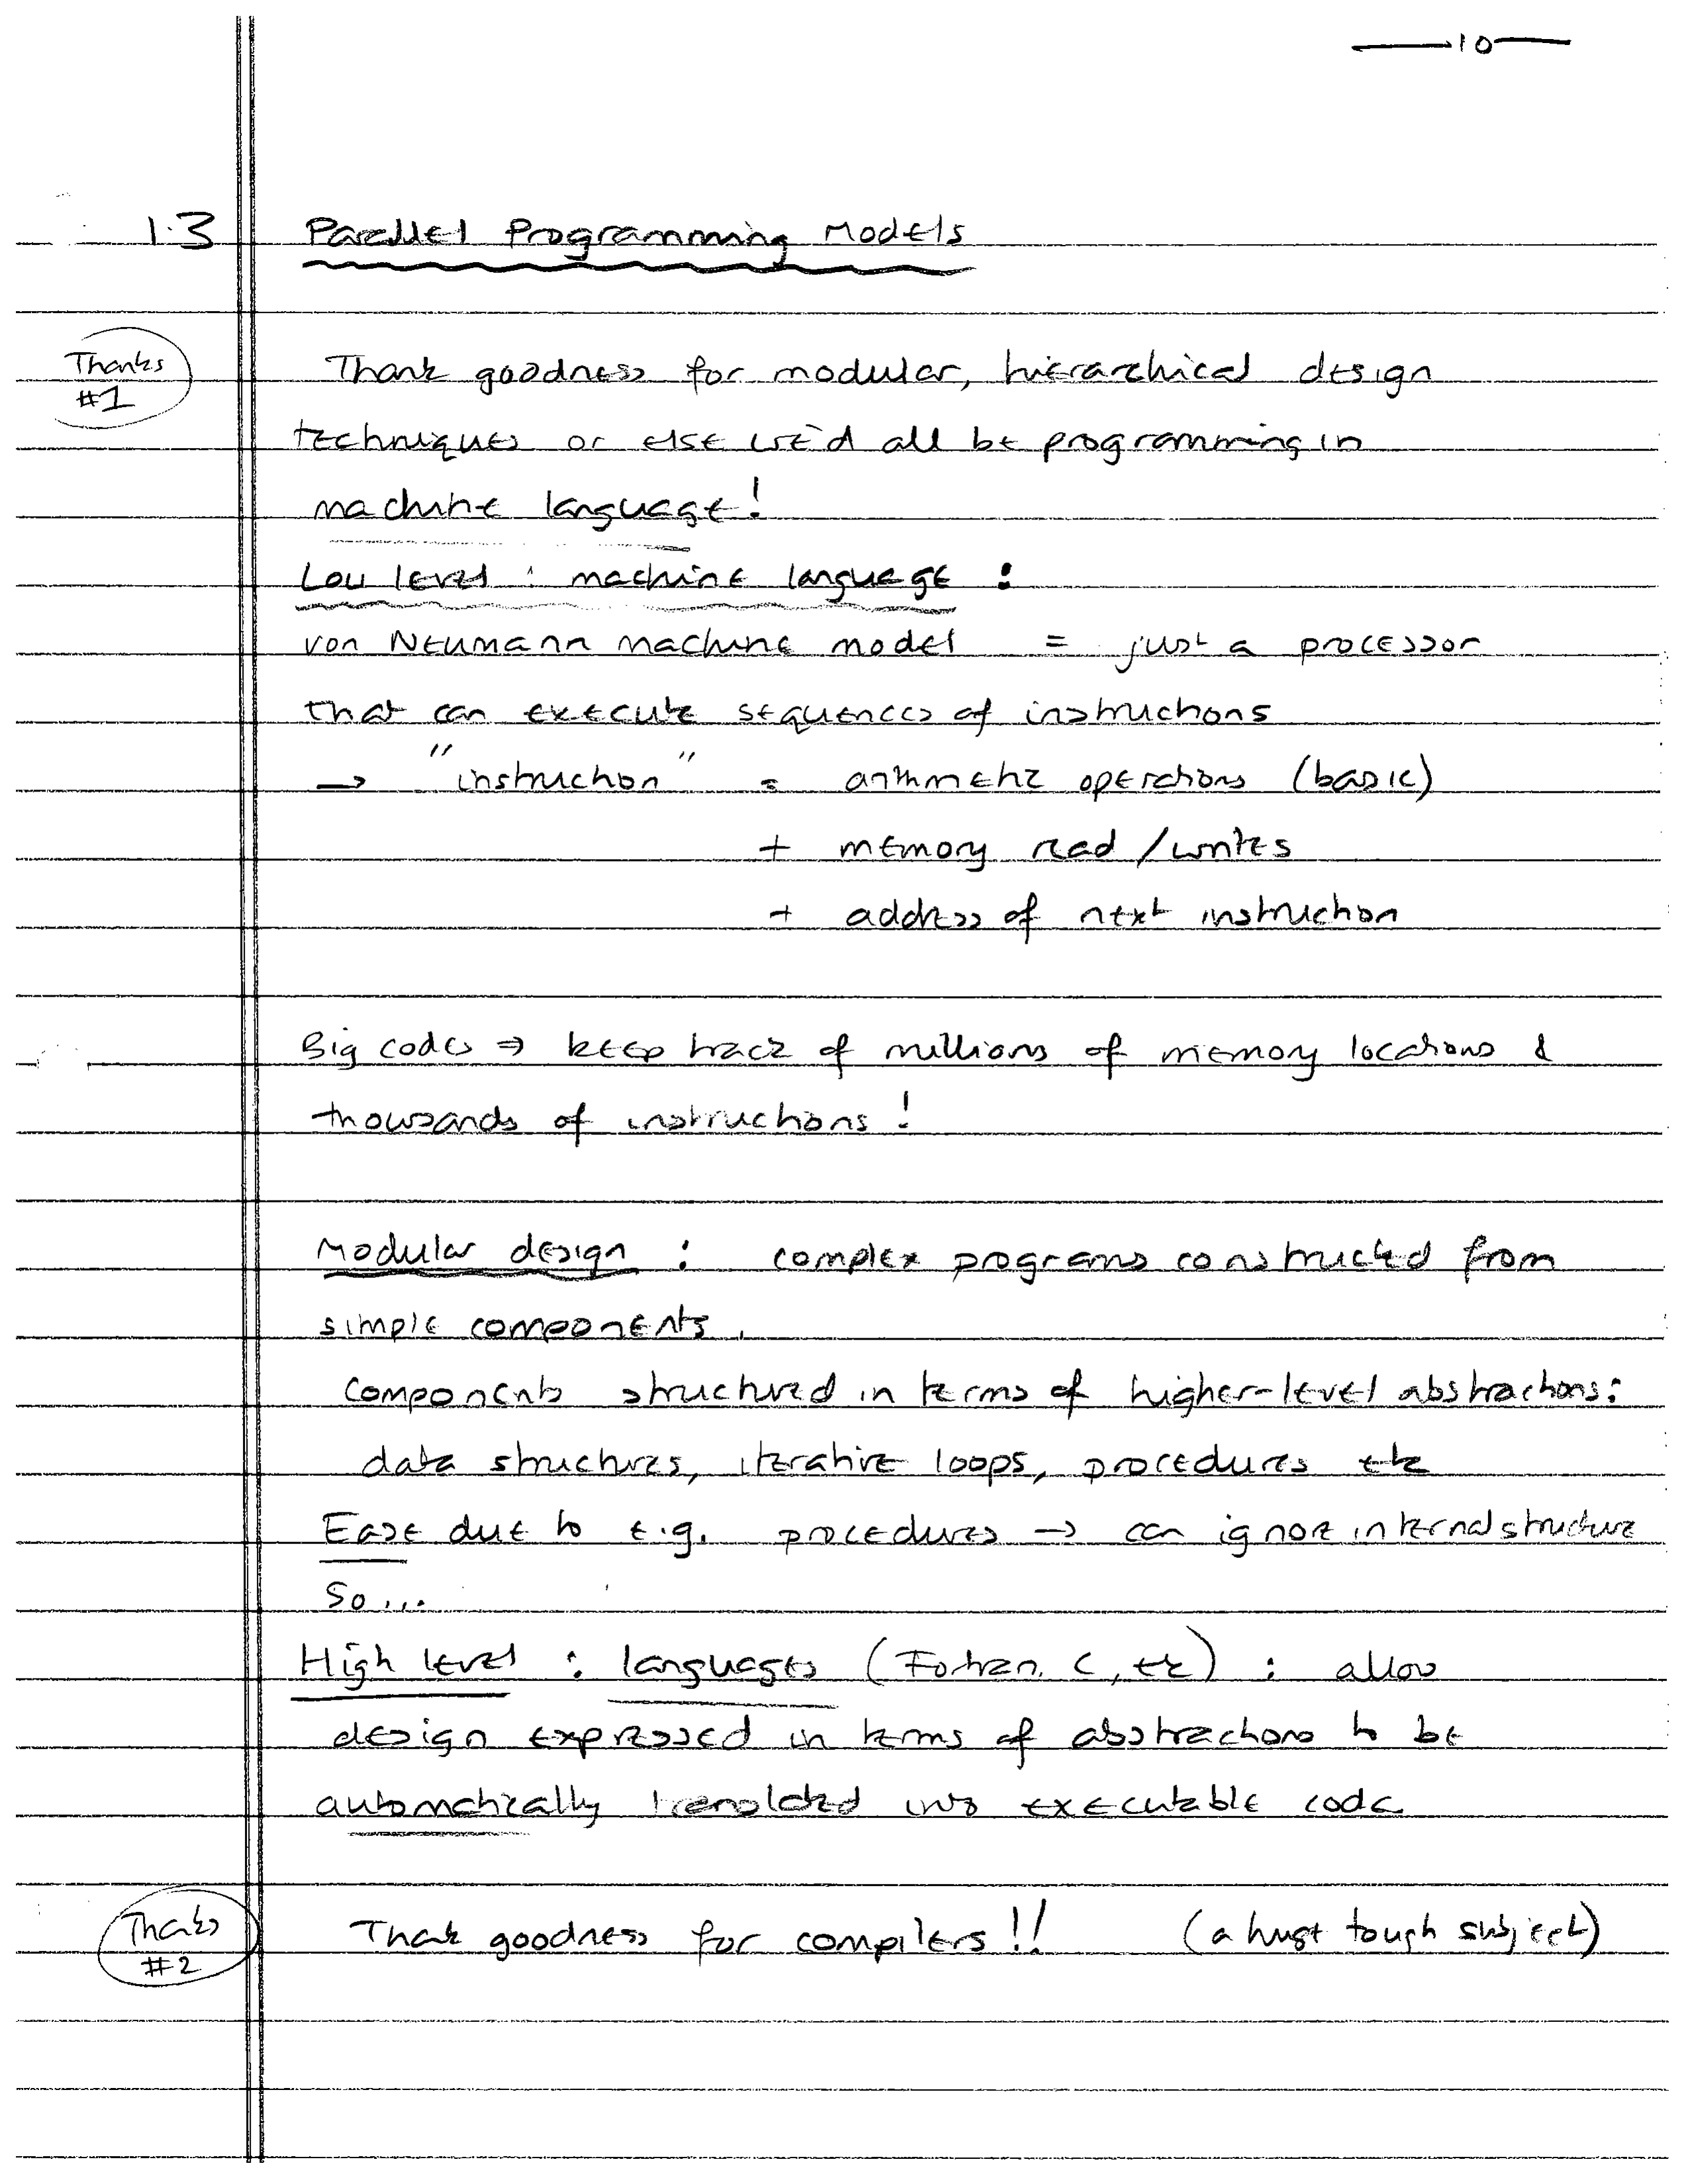 —10—
1.3 Parallel Programming Models
Thanks #1
Thank goodness for modular, hierarchical design
techniques or else we'd all be programming in
machine language!
Low level : machine language :
von Neumann machine model = just a processor
that can execute sequences of instructions
→ "instruction" = arithmetic operations (basic)
+ memory read / writes
+ address of next instruction
Big codes ⇒ keep track of millions of memory locations &
thousands of instructions!
Modular design : complex programs constructed from
simple components.
Components structured in terms of higher-level abstractions:
data structures, iterative loops, procedures etc
Ease due to e.g. procedures → can ignore internal structure
So...
High level : languages (Fortran, C, etc) : allow
design expressed in terms of abstractions to be
automatically translated into executable code
Thanks #2
Thank goodness for compilers!! (a huge tough subject)